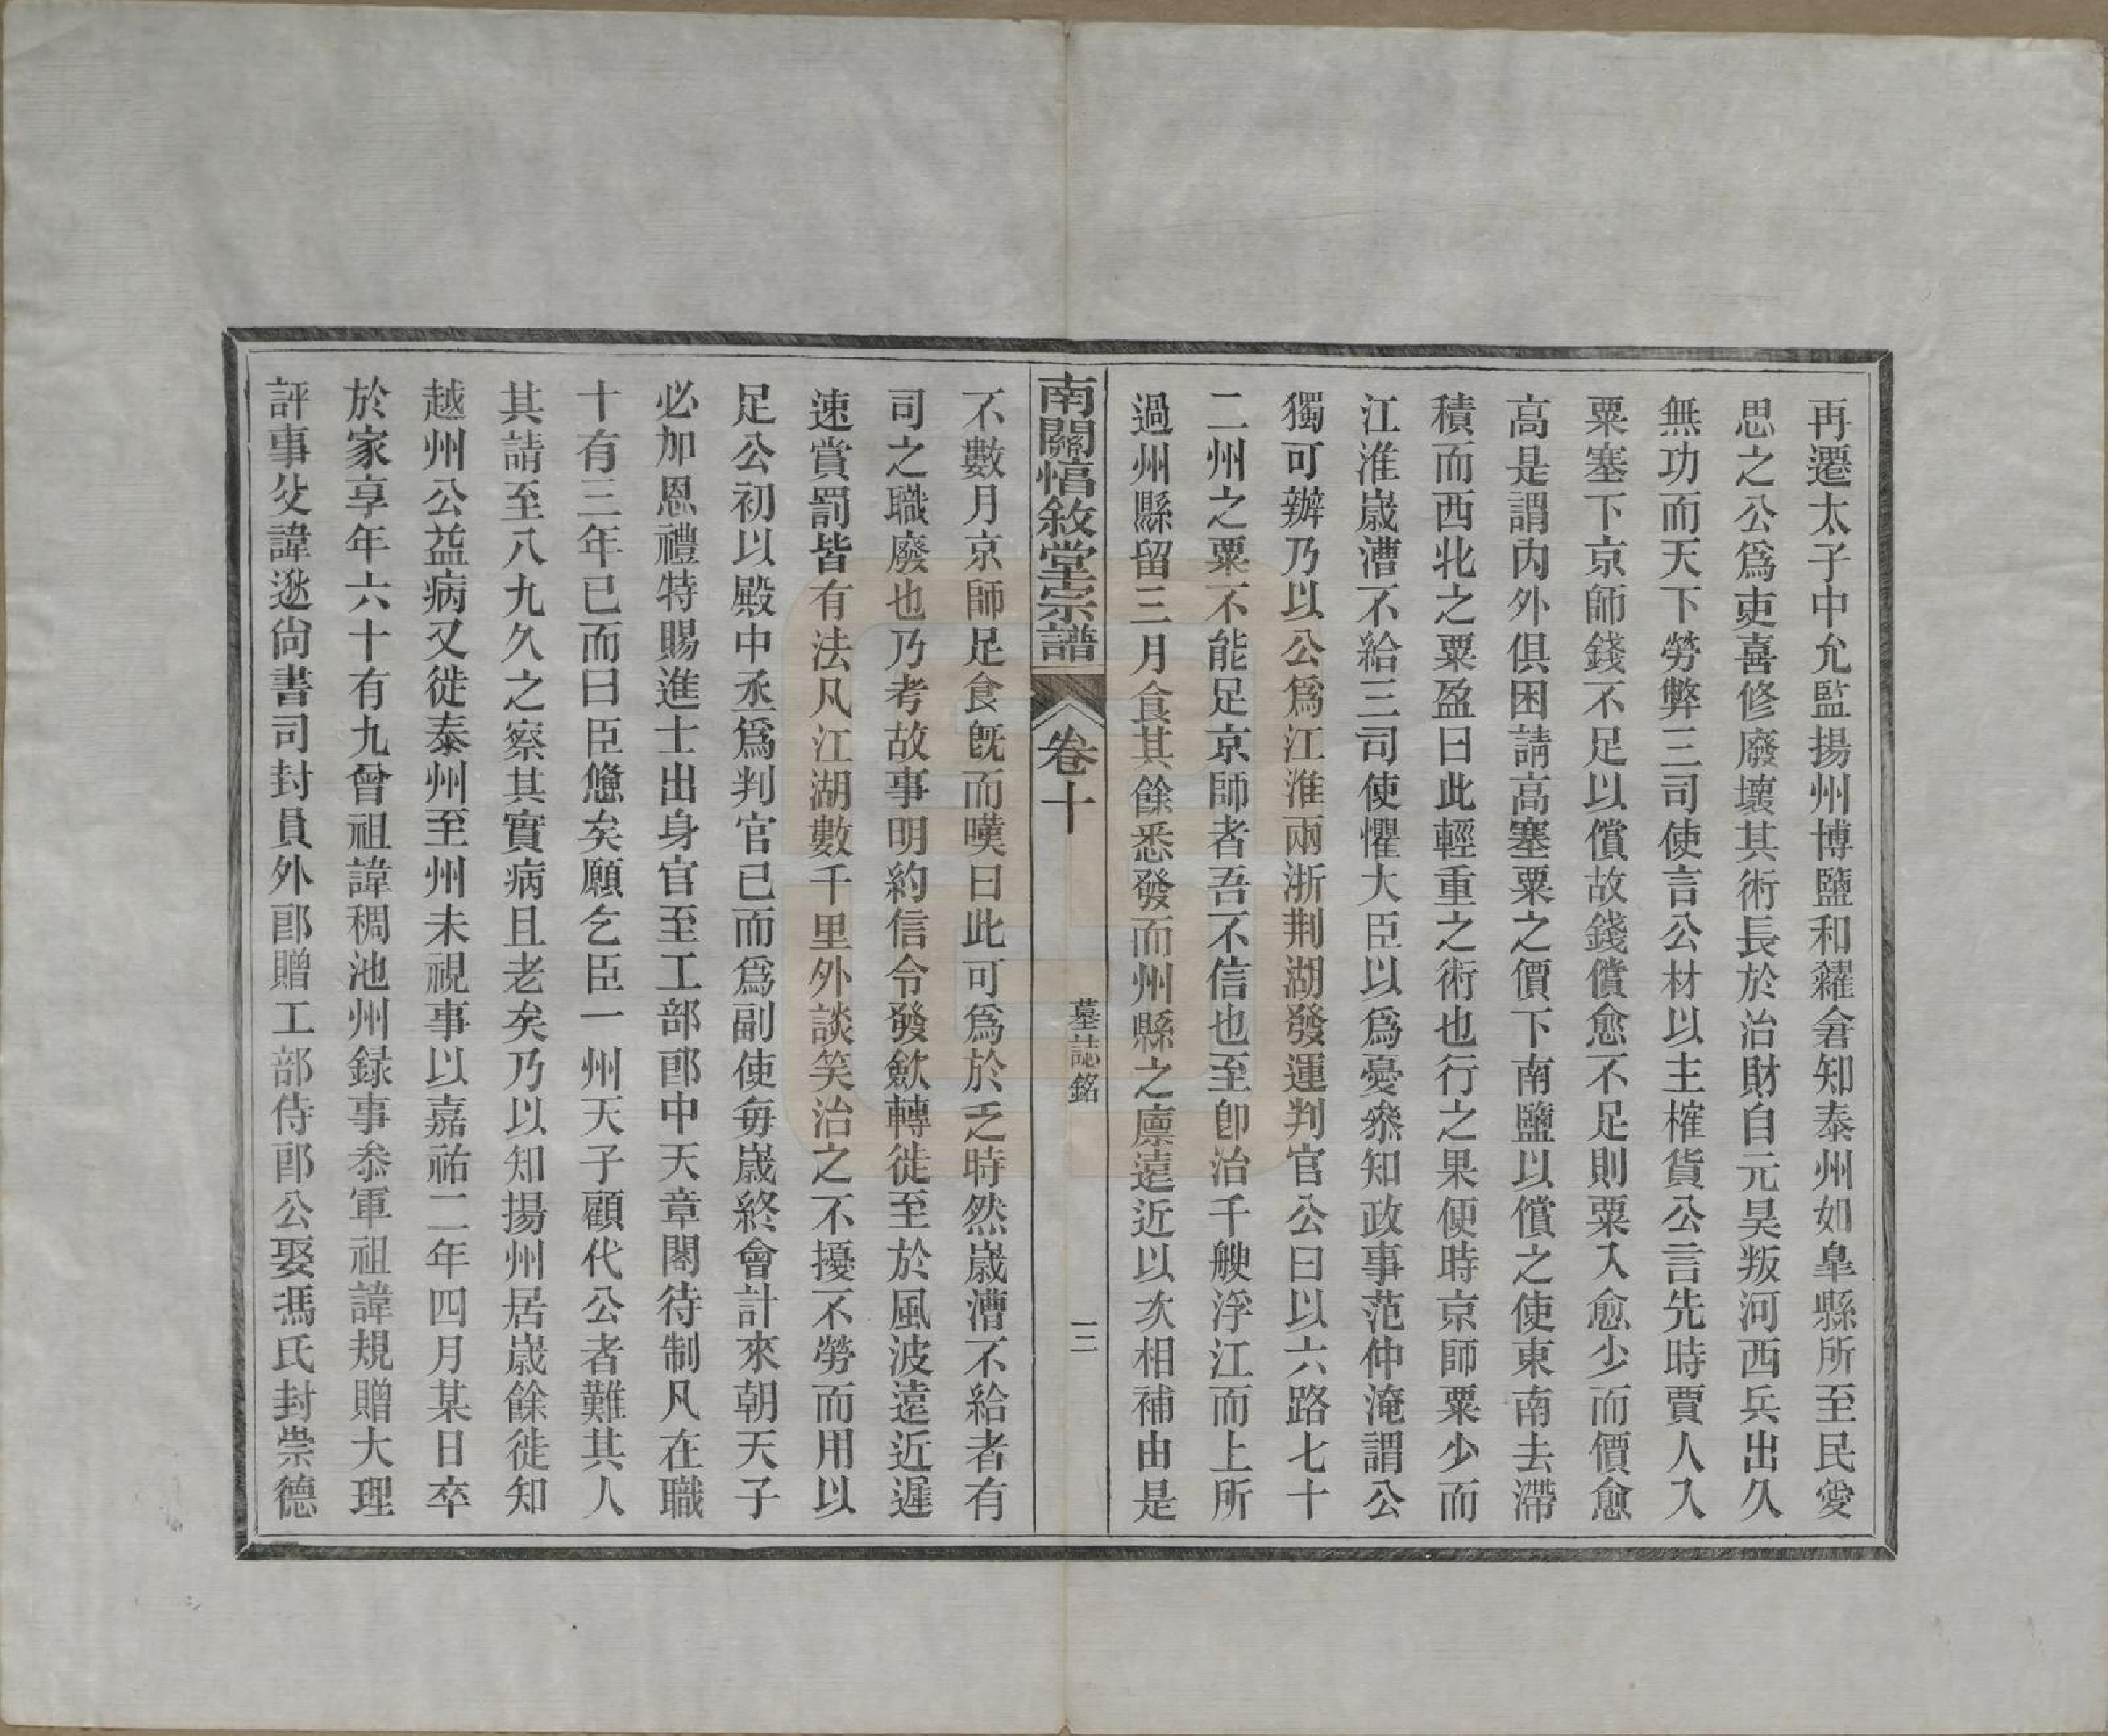 再遷太子中允監揚州博鹽和糴倉知泰州如臯縣所至民愛
思之公爲吏喜修廢壞其術長於治財自元昊叛河西兵出久
無功而天下勞弊三司使言公材以主榷貨公言先時賈人入
粟塞下京師錢不足以償故錢償愈不足則粟入愈少而價愈
高是謂內外俱困請高塞粟之價下南鹽以償之使東南去滯
積而西北之粟盈曰此輕重之術也行之果便時京師粟少而
江淮嵗漕不給三司使懼大臣以爲憂叅知政事范仲淹謂公
獨可辦乃以公爲江淮兩浙荆湖發運判官公曰以六路七十
二州之粟不能足京師者吾不信也至卽治千艘浮江而上所
過州縣留三月食其餘悉發而州縣之廪遠近以次相補由是
南關惇敘堂宗譜 卷十 墓誌銘 三
不數月京師足食旣而嘆曰此可爲於乏時然嵗漕不給者有
司之職廢也乃考故事明約信令發歛轉徙至於風波遠近遲
速賞罰皆有法凡江湖數千里外談笑治之不擾不勞而用以
足公初以殿中丞爲判官已而爲副使每嵗終會計來朝天子
必加恩禮特賜進士出身官至工部郎中天章閣待制凡在職
十有三年已而曰臣憊矣願乞臣一州天子顧代公者難其人
其請至八九久之察其實病且老矣乃以知揚州居嵗餘徙知
越州公益病又徙泰州至州未視事以嘉祐二年四月某日卒
於家享年六十有九曾祖諱稠池州録事叅軍祖諱規贈大理
評事父諱逖尙書司封員外郎贈工部侍郎公娶馮氏封崇德